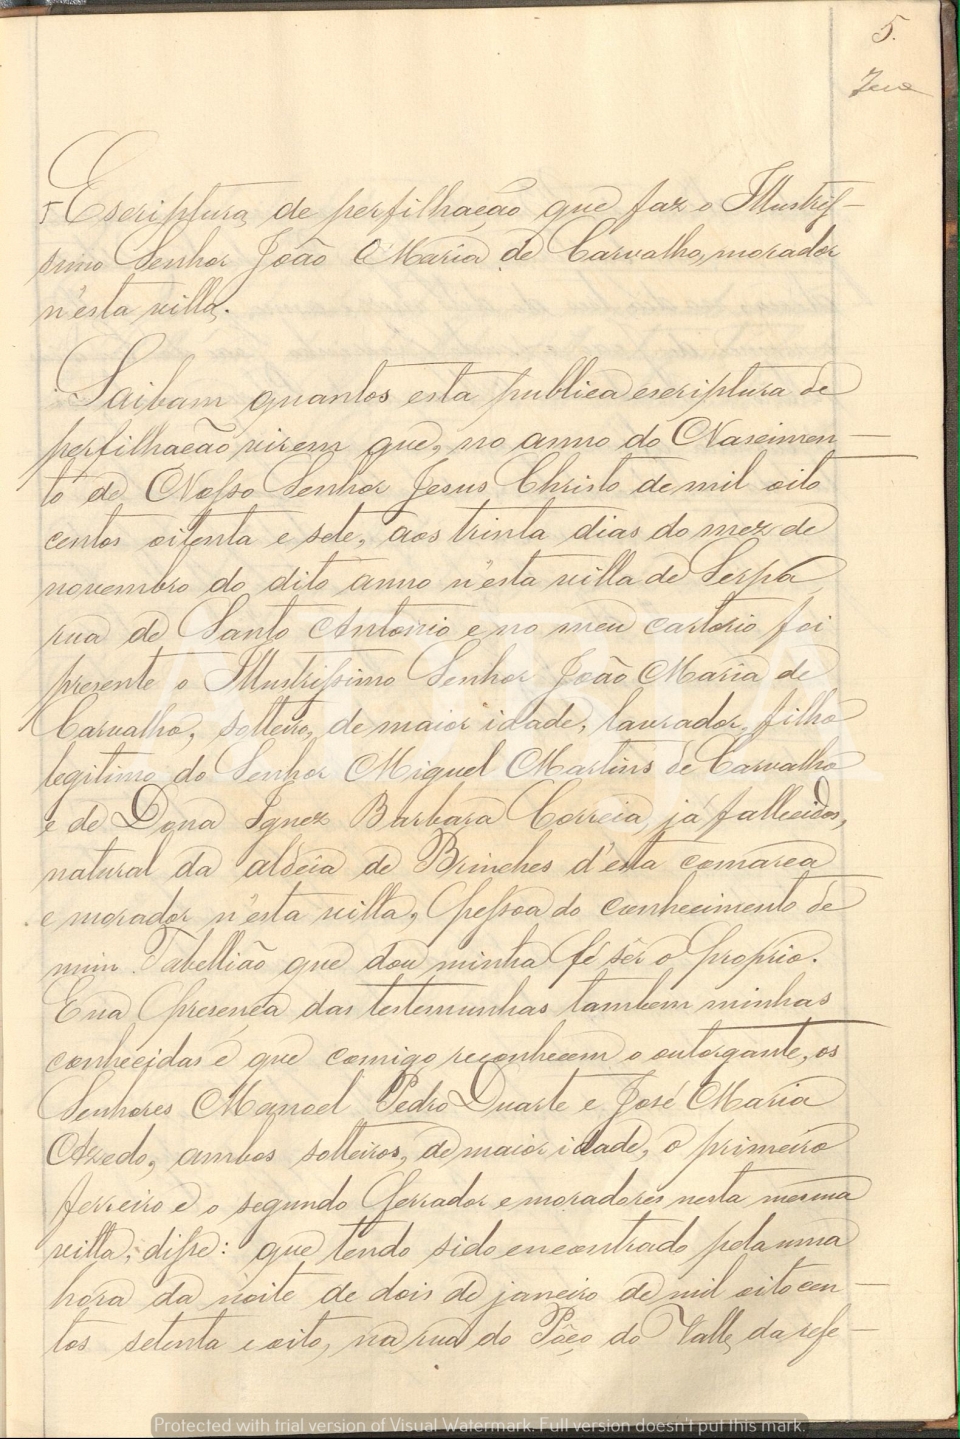 5.
Escriptura de perfilhação que faz o Illustris-
simo Senhor João Maria de Carvalho, morador
n'esta villa.
Saibam quantos esta publica escriptura de
perfilhação virem que, no anno do Nascimen-
to de Nosso Senhor Jesus Christo de mil oito
centos oitenta e sete, aos trinta dias do mez de
novembro do dito anno n'esta villa de Serpa
rua de Santo Antonio e no meu cartorio foi
presente o Illustrissimo Senhor João Maria de
Carvalho, solteiro, de maior idade, lavrador, filho
legitimo do Senhor Miguel Martins de Carvalho
e de Dona Ignez Barbara Correia, já fallecidos,
natural da aldeia de Brinches d'esta comarca
e morador n'esta villa, pessoa do conhecimento de
mim Tabellião que dou minha fé sêr o proprio.
E na presença das testemunhas tambem minhas
conhecidas e que comigo reconhecem o outorgante, os
Senhores Manoel Pedro Duarte e José Maria
Azedo, ambos solteiros, de maior idade, o primeiro
ferreiro e o segundo ferrador e moradores nesta mesma
villa, disse: que tendo sido encontrado pela uma
hora da noite de dois de janeiro de mil oitocen-
tos setenta e oito, na rua do Pôço do Valle, da refe-
Protected with trial version of Visual Watermark. Full version doesn't put this mark.